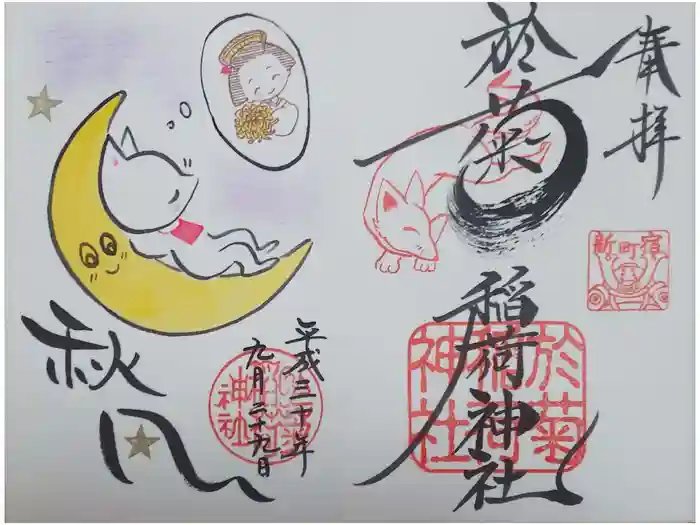 奉拝
於菊
稲荷神社
新町宿
於菊
稲荷
神社
平成三十年
九月二十九日
神社
秋